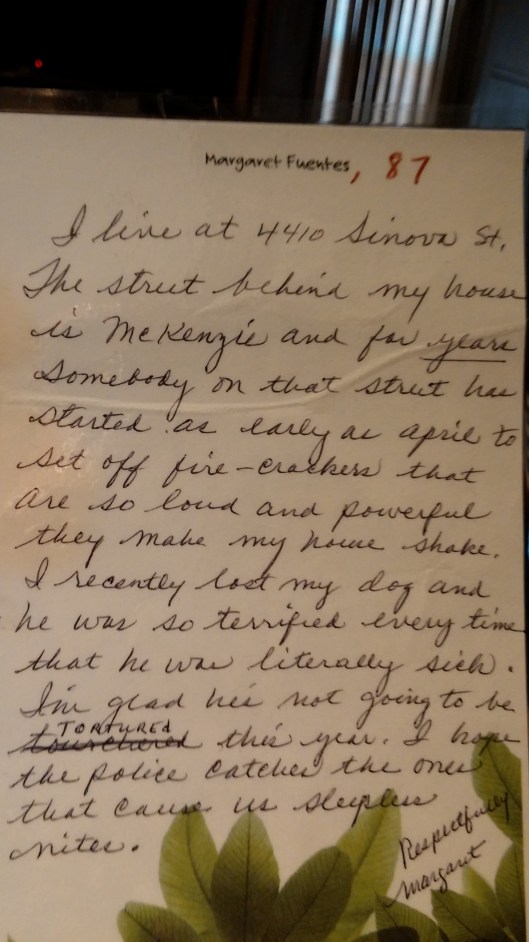 Margaret Fuentes, 87
I live at 4410 Sinova St.
The street behind my house
is McKenzie and for years
somebody on that street has
started as early as april to
set off fire-crackers that
are so loud and powerful
they make my house shake.
I recently lost my dog and
he was so terrified every time
that he was literally sick.
I'm glad he's not going to be
TORTURED
tourchered this year. I hope
the police catches the ones
that cause us sleepless
nites.
Respectfully
Margaret